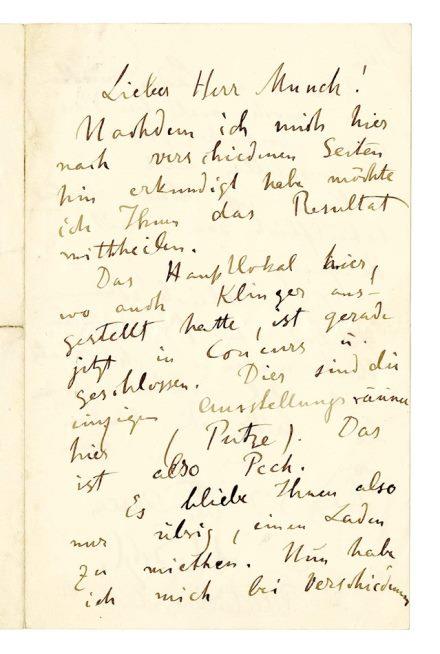 Lieber Herr Munch!
Nachdem ich mich hier
nach verschiedenen Seiten
hin erkundigt habe möchte
ich Ihnen das Resultat
mittheilen.
Das Hauptlokal hier,
wo auch Klinger aus-
gestellt hatte, ist gerade
jetzt in Concurs u.
geschlossen. Dies sind die
einzigen Ausstellungsräume
hier (Putze). Das
ist also Pech.
Es bliebe Ihnen also
nur übrig, einen Laden
zu miethen. Nun habe
ich mich bei verschiedenen